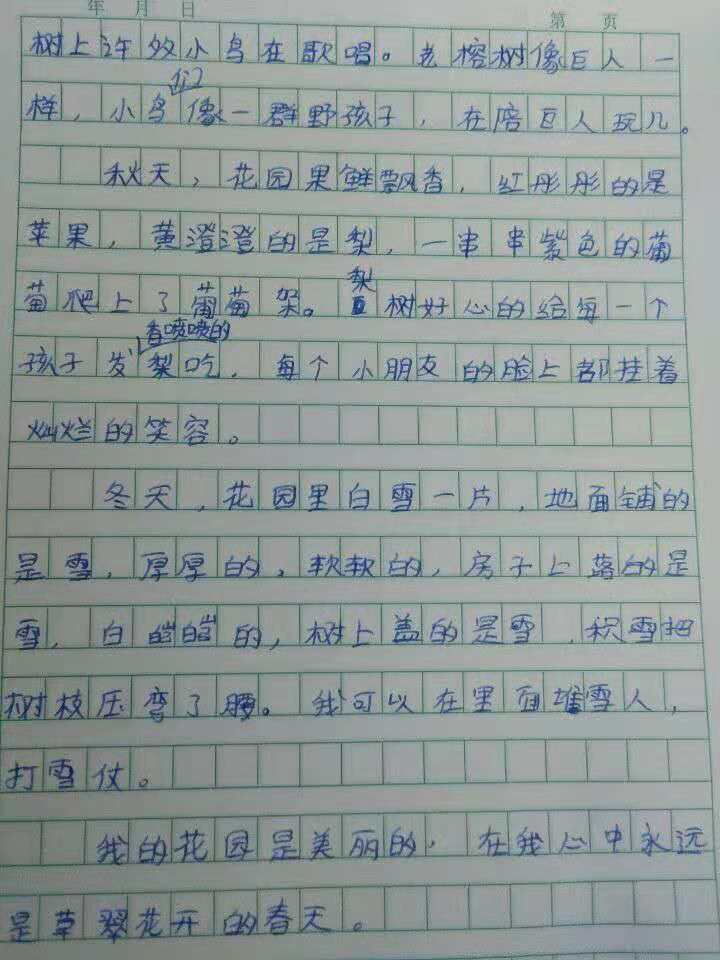 年 月 日 第 页
树上许效小鸟在歌唱。老榕树像巨人一
样，小鸟们像一群野孩子，在陪巨人玩儿。
秋天，花园果鲜飘香，红彤彤的是
苹果，黄澄澄的是梨，一串串紫色的葡
萄爬上了葡萄架。梨树好心的给每一个
孩子发香喷喷的梨吃，每个小朋友的脸上都挂着
灿烂的笑容。
冬天，花园里白雪一片，地面铺的
是雪，厚厚的，软软的，房子上落的是
雪，白皑皑的，树上盖的是雪，积雪把
树枝压弯了腰。我可以在里面堆雪人，
打雪仗。
我的花园是美丽的，在我心中永远
是草翠花开的春天。